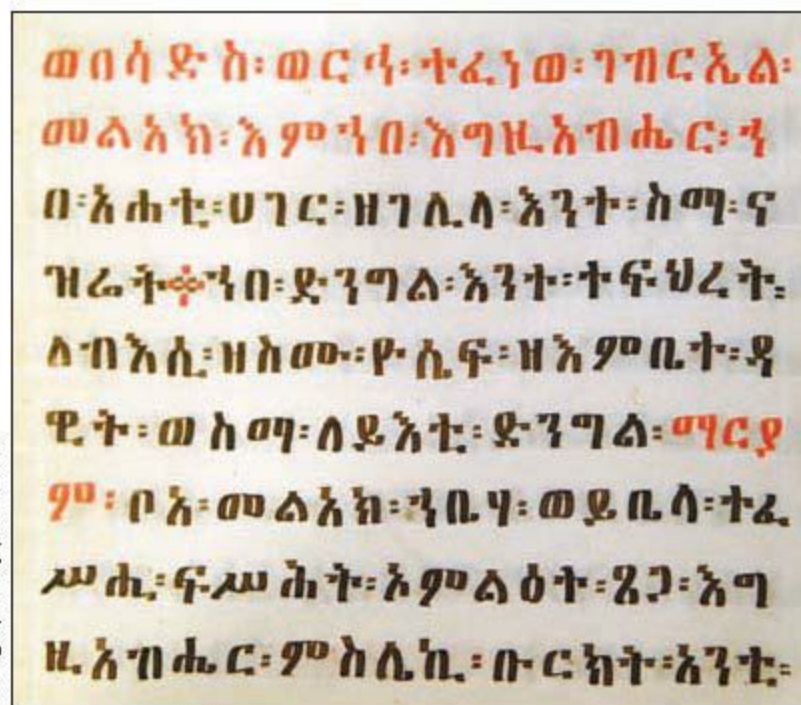 ወበሳድስ፡ወርኅ፡ተፈነወ፡ገብርኤል፡
መልአክ፡እምኀበ፡እግዚአብሔር፡ኀ
በ፡አሐቲ፡ሀገር፡ዘገሊላ፡እንተ፡ስማ፡ና
ዝሬት፨ኀበ፡ድንግል፡እንተ፡ተፍህረት፡
ለብእሲ፡ዘስሙ፡ዮሲፍ፡ዘእምቤተ፡ዳ
ዊት፡ወስማ፡ለይእቲ፡ድንግል፡ማርያ
ም፡ቦአ፡መልአክ፡ኀቤሃ፡ወይቤላ፡ተፈ
ሥሒ፡ፍሥሕት፡ኦምልዕተ፡ጸጋ፡እግ
ዚአብሔር፡ምስሌኪ፡ቡርክት፡አንቲ፡